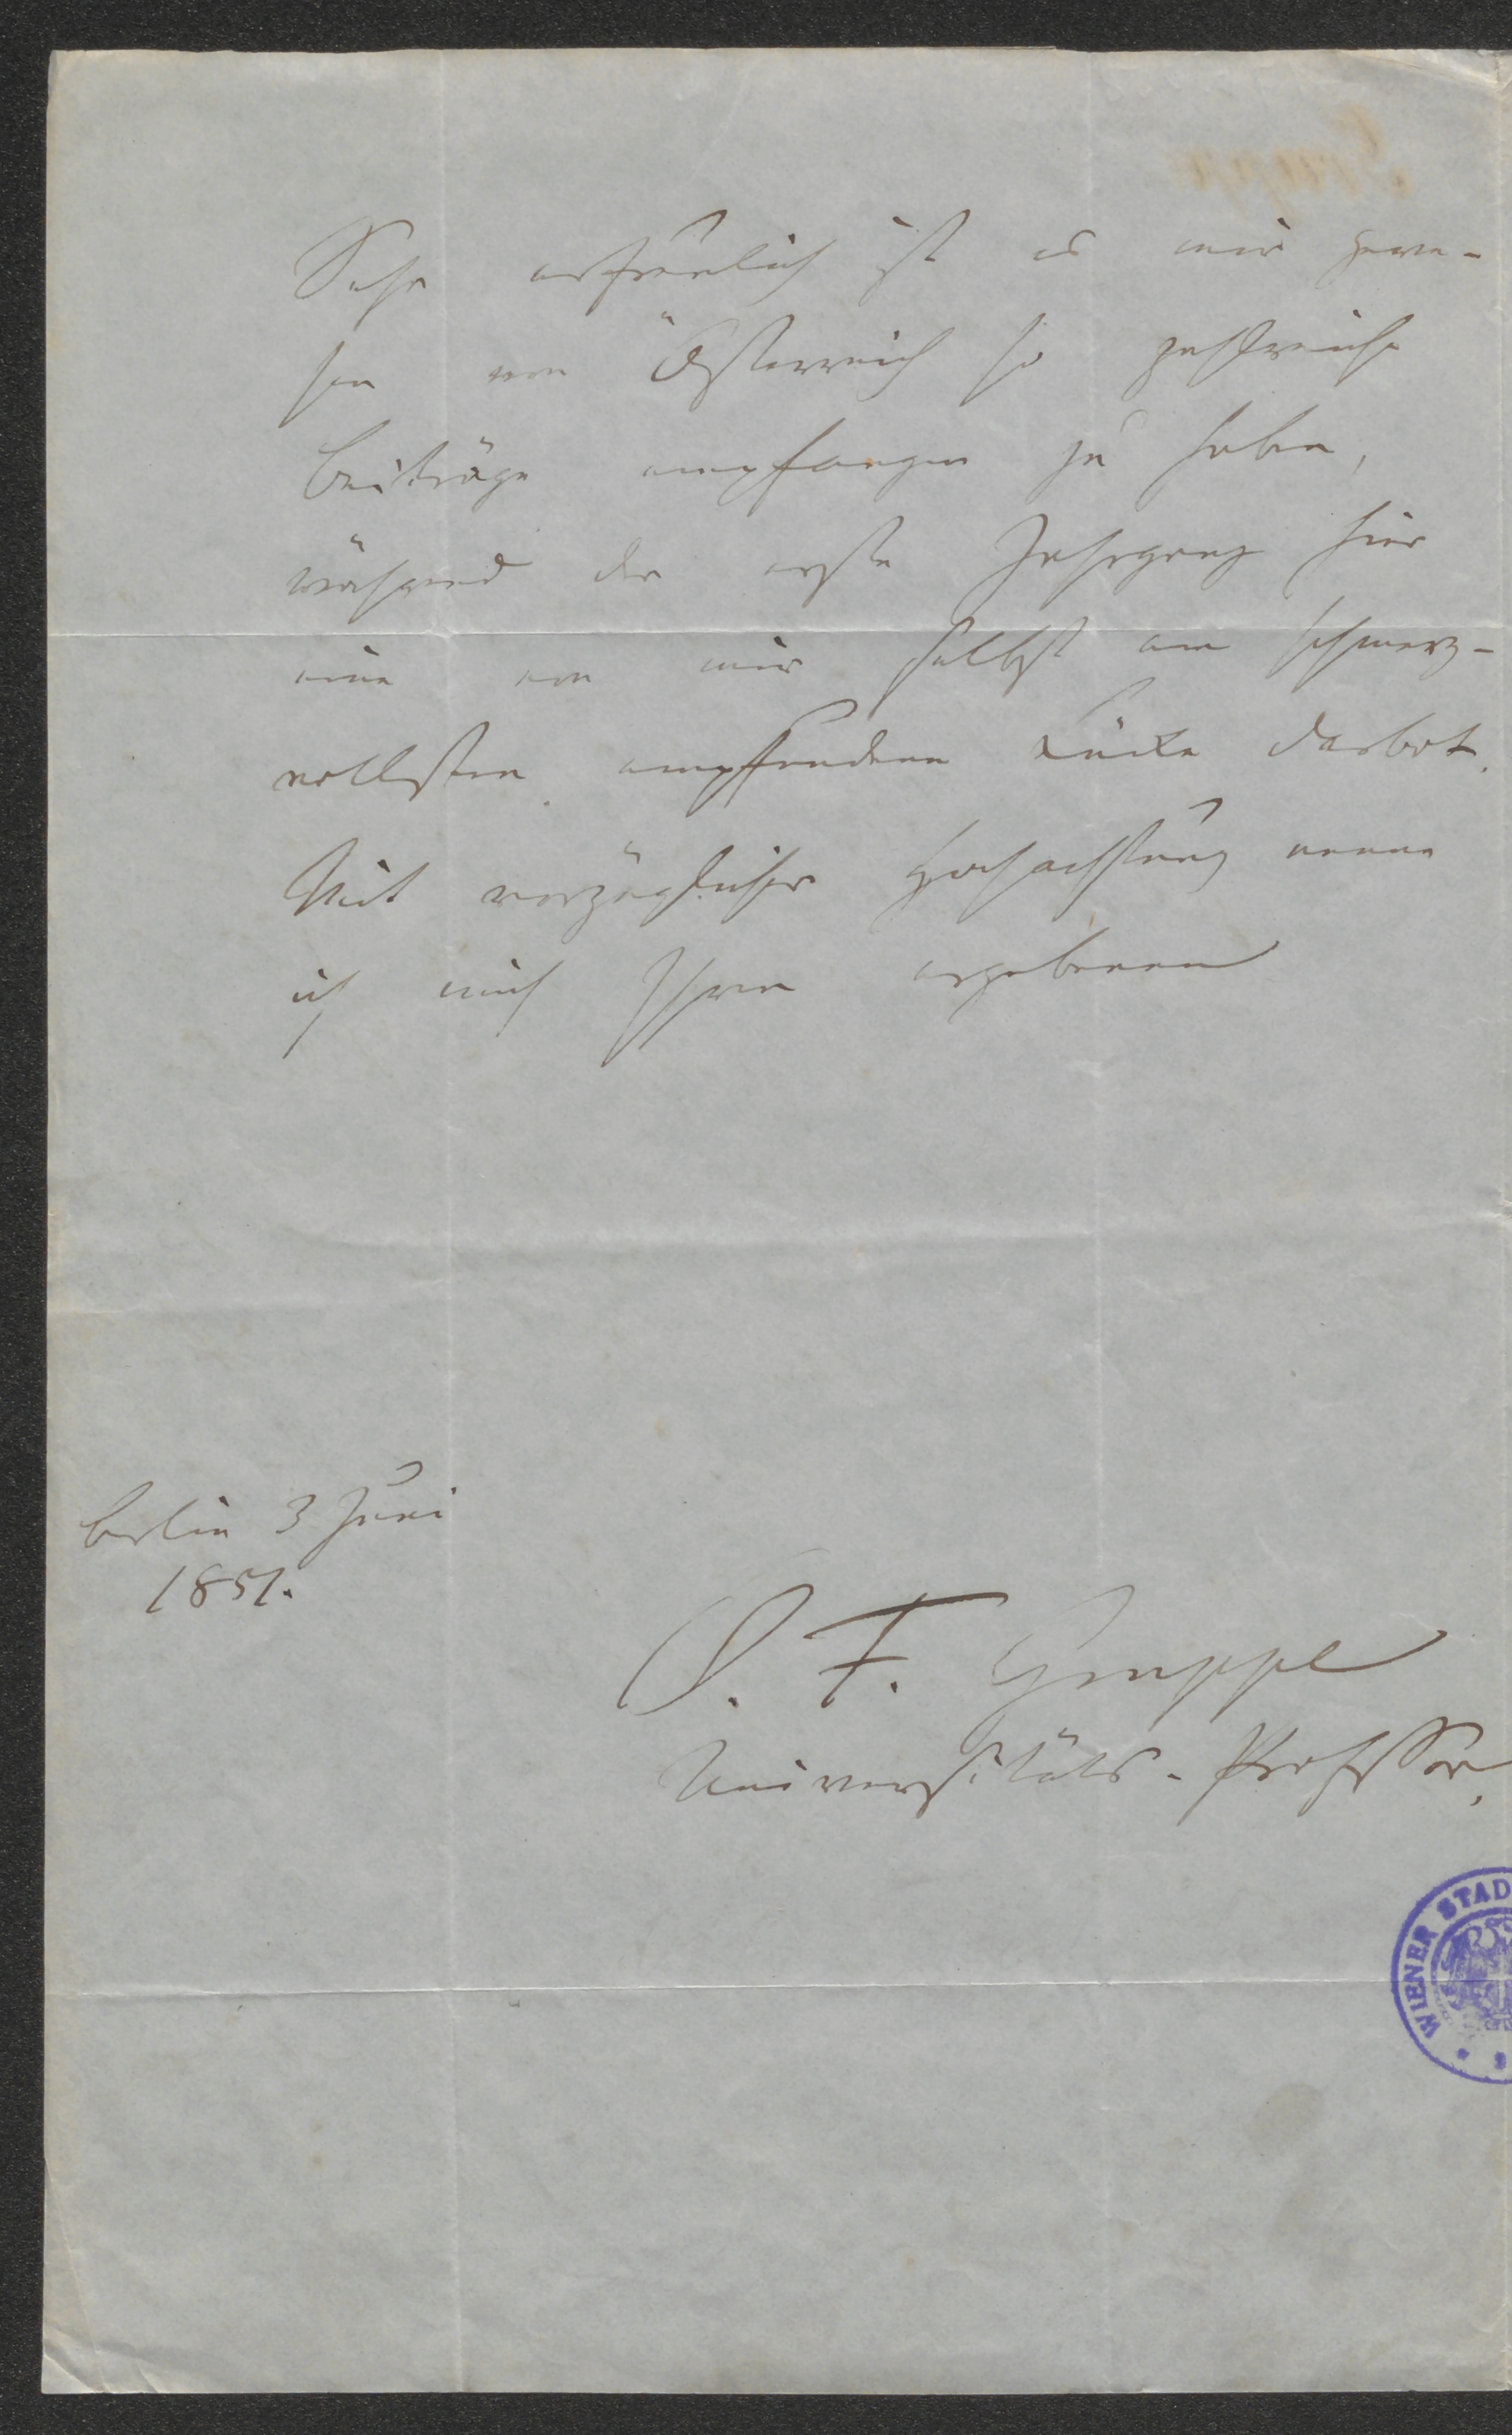 Sehr erfreulich ist es mir gewe-
sen von Österreich so zahlreiche
Beiträge empfangen zu haben,
während der erste Jahrgang hier
eine von mir selbst am schmerz-
vollsten empfundene Lücke darbot.
Mit vorzüglicher Hochachtung nenne
ich mich Ihren ergebenen
Berlin 3 Juni
1851.
O. F. Gruppe
Universitäts-Professor.
WIENER STAD